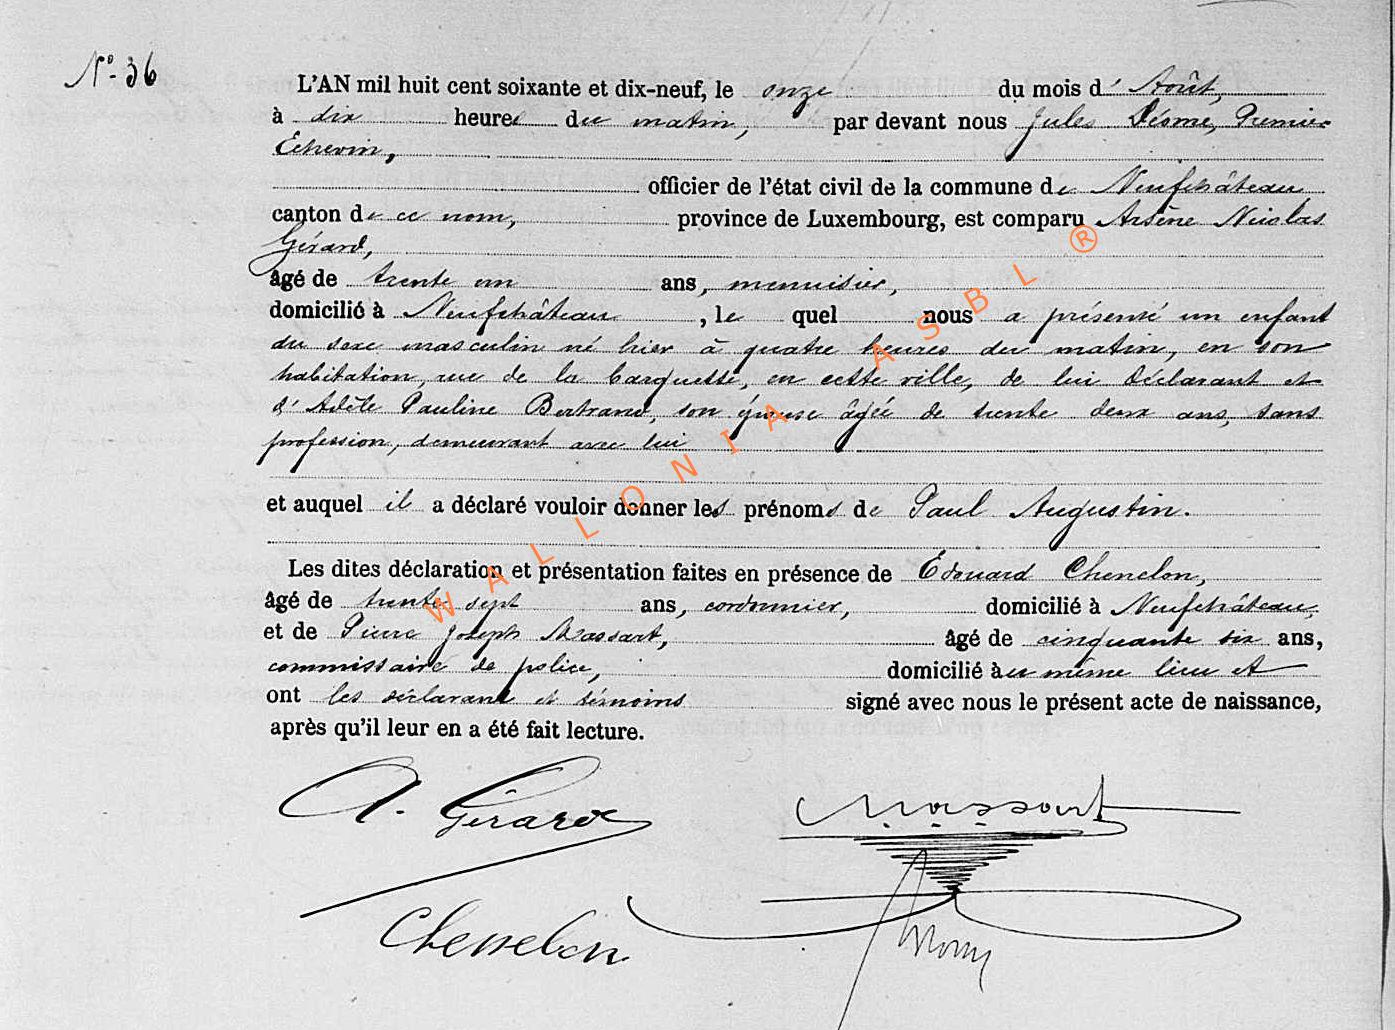 N° 36
L'AN mil huit cent soixante et dix-neuf, le onze du mois d'Août,
à dix heures du matin, par devant nous Jules Désomé, Premier
Echevin,
officier de l'état civil de la commune de Neufchâteau
canton de ce nom, province de Luxembourg, est comparu Arsène Nicolas
Gérard,
âgé de trente un ans, menuisier,
domicilié à Neufchâteau, le quel nous a présenté un enfant
du sexe masculin né hier à quatre heures du matin, en son
habitation, rue de la barquette, en cette ville, de lui déclarant et
d'Adèle Pauline Bertrand, son épouse âgée de trente deux ans, sans
profession, demeurant avec lui
et auquel il a déclaré vouloir donner les prénoms de Paul Augustin.
Les dites déclaration et présentation faites en présence de Edouard Chenelon,
âgé de trente sept ans, cordonnier, domicilié à Neufchâteau,
et de Pierre Joseph Massart, âgé de cinquante six ans,
commissaire de police, domicilié au même lieu et
ont les déclarant et témoins signé avec nous le présent acte de naissance,
après qu'il leur en a été fait lecture.
A. Gérard
Massart
Chenelon
WALLONIA ASBL ®